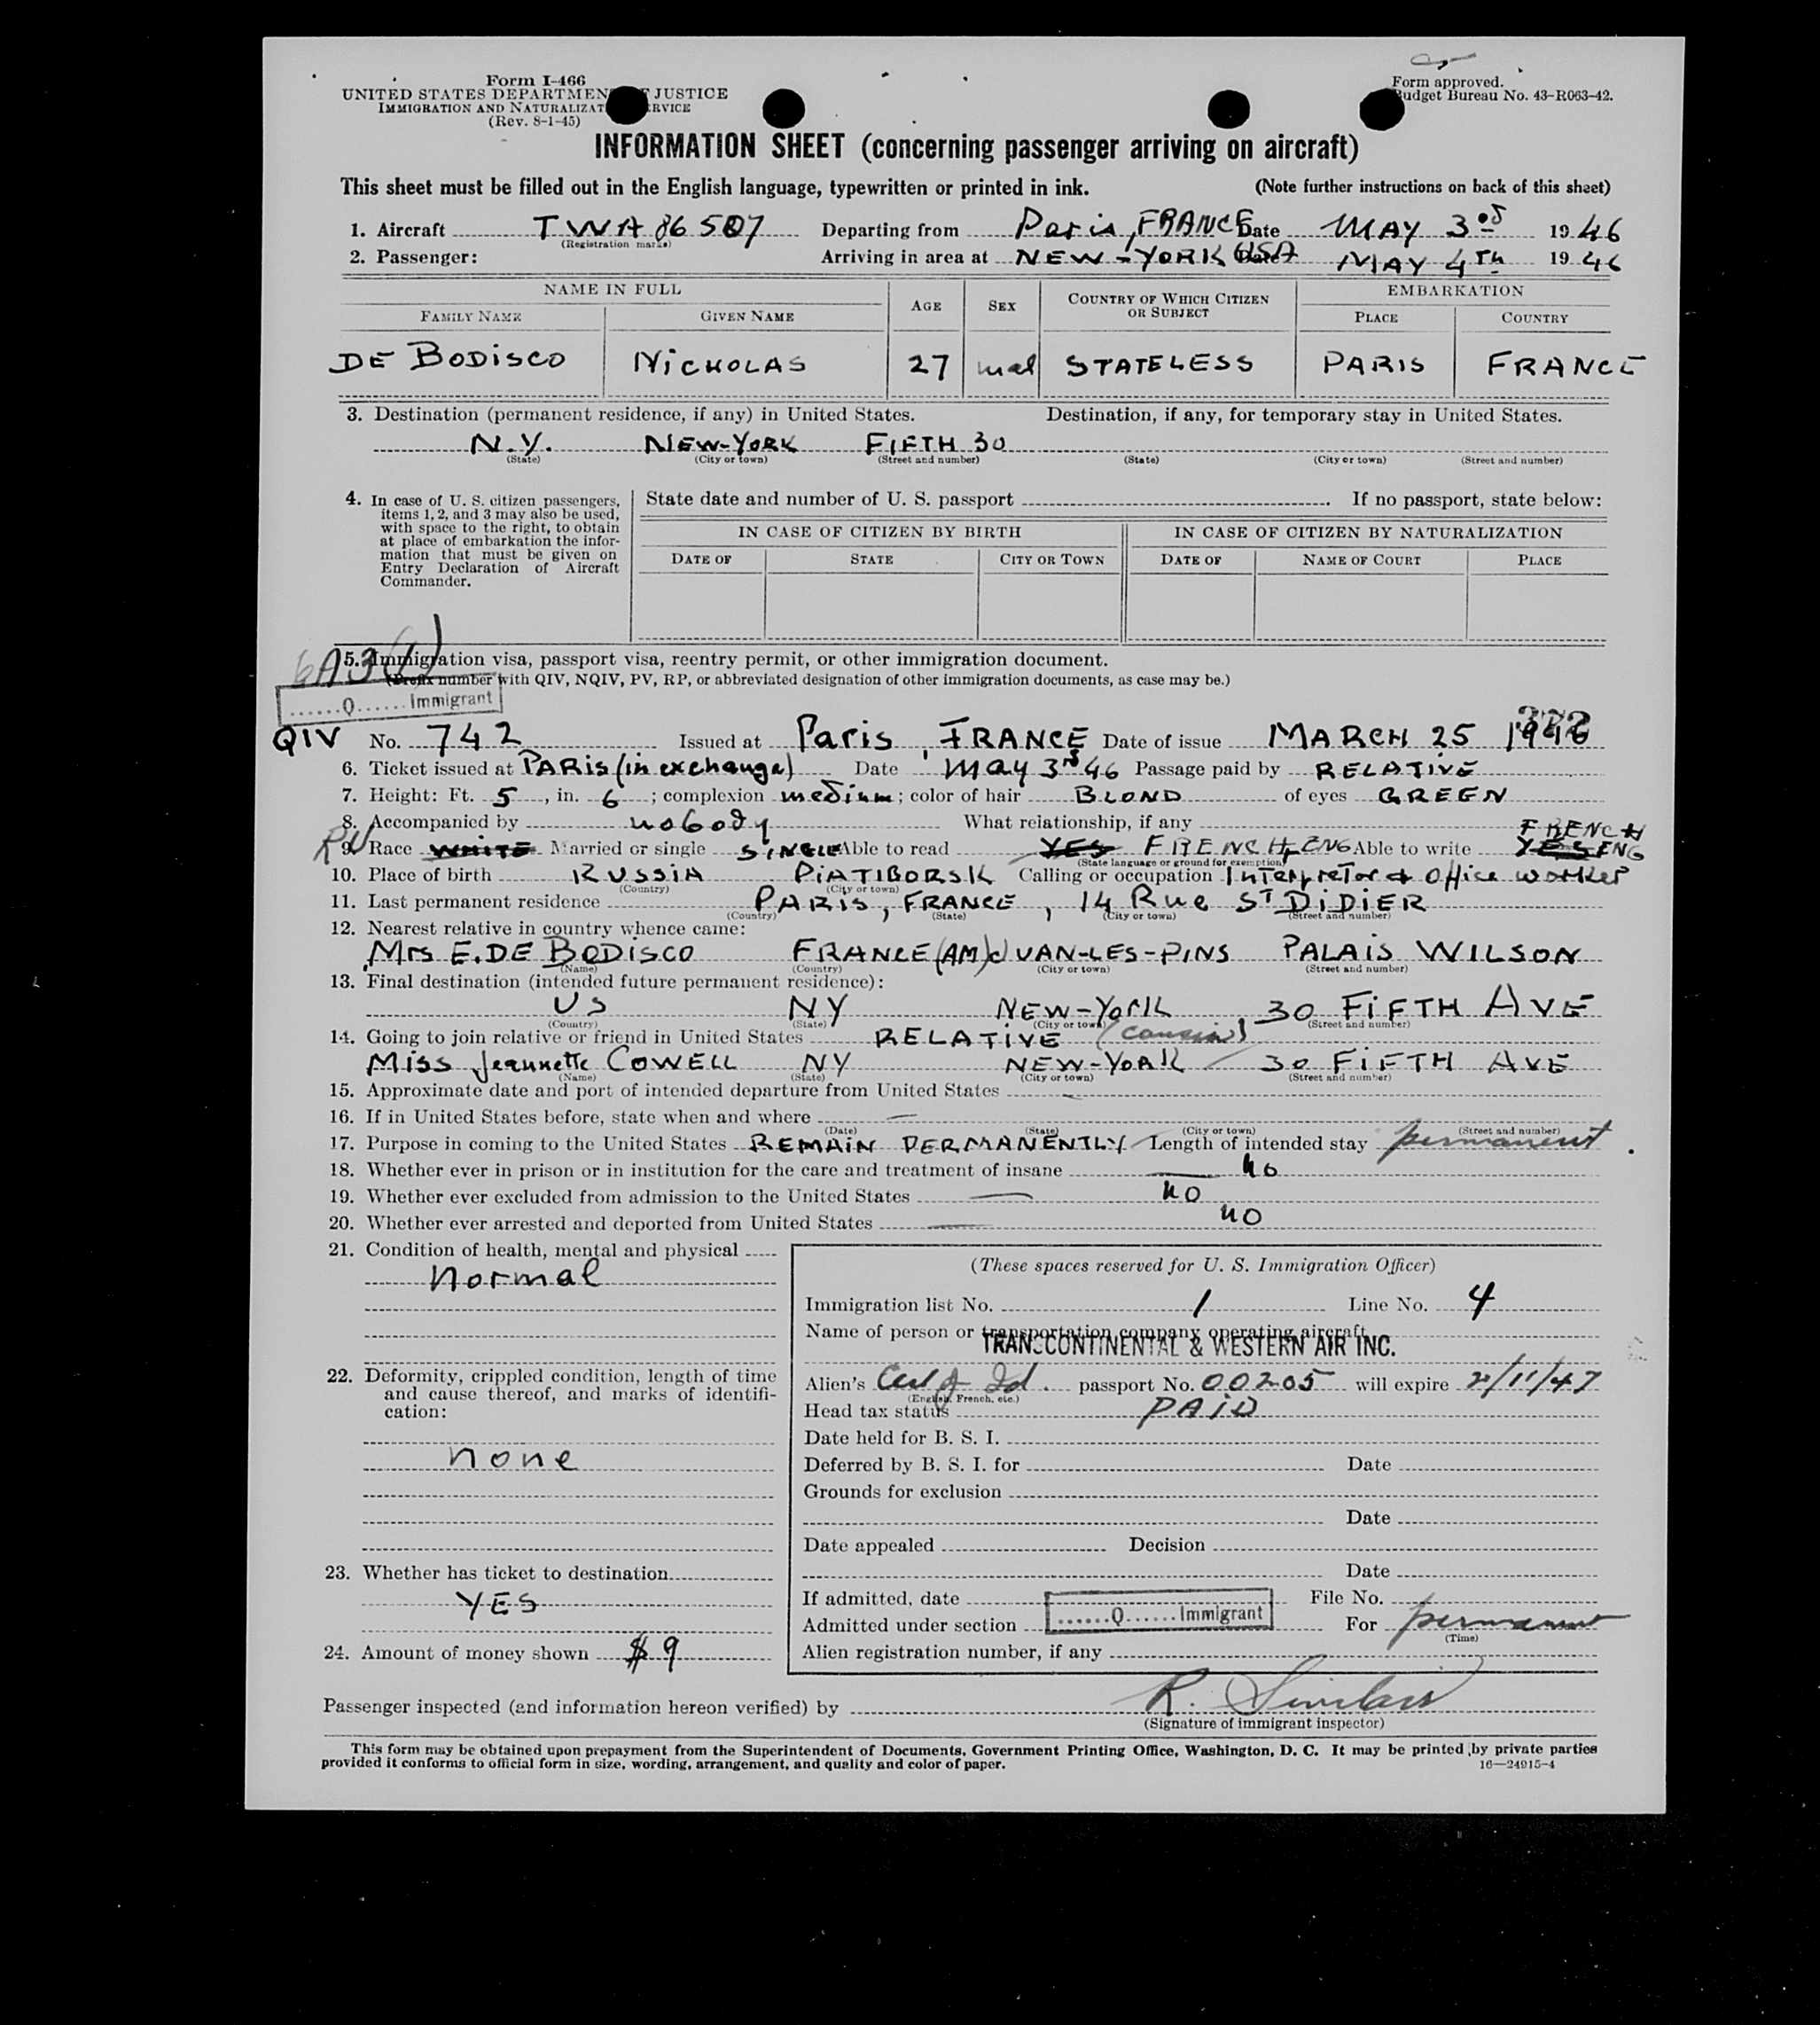 Form I-466
UNITED STATES DEPARTMENT JUSTICE
IMMIGRATION AND NATURALIZAT RVICE
(Rev. 8-1-45)
Form approved.
udget Bureau No. 43-R063-42.
INFORMATION SHEET (concerning passenger arriving on aircraft)
This sheet must be filled out in the English language, typewritten or printed in ink. (Note further instructions on back of this sheet)
1. Aircraft TWA 86507 Departing from Paris, FRANCE Date MAY 3rd 1946
(Registration marks)
2. Passenger: Arriving in area at NEW-YORK USA Date MAY 4Th 1946
NAME IN FULL AGE SEX COUNTRY OF WHICH CITIZEN OR SUBJECT EMBARKATION
FAMILY NAME GIVEN NAME PLACE COUNTRY
DE BODISCO NICHOLAS 27 mal STATELESS PARIS FRANCE
3. Destination (permanent residence, if any) in United States. Destination, if any, for temporary stay in United States.
N.Y. NEW-YORK FIFTH 30
(State) (City or town) (Street and number) (State) (City or town) (Street and number)
4. In case of U. S. citizen passengers, items 1, 2, and 3 may also be used, with space to the right, to obtain at place of embarkation the information that must be given on Entry Declaration of Aircraft Commander.
State date and number of U. S. passport . If no passport, state below:
IN CASE OF CITIZEN BY BIRTH IN CASE OF CITIZEN BY NATURALIZATION
DATE OF STATE CITY OR TOWN DATE OF NAME OF COURT PLACE
6A3(1)
5. Immigration visa, passport visa, reentry permit, or other immigration document.
(Prefix number with QIV, NQIV, PV, RP, or abbreviated designation of other immigration documents, as case may be.)
......Q......Immigrant
QIV No. 742 Issued at Paris, FRANCE Date of issue MARCH 25 1946
6. Ticket issued at PARIS (in exchange) Date May 3rd 46 Passage paid by RELATIVE
7. Height: Ft. 5, in. 6; complexion medium; color of hair BLOND of eyes GREEN
8. Accompanied by nobody What relationship, if any
FRENCH
9. Race WHITE Married or single SINGLE Able to read YES FRENCH, ENG Able to write YES ENG
(State language or ground for exemption)
10. Place of birth RUSSIA PIATIBORSK Calling or occupation Interpretor & Office worker
(Country) (City or town)
11. Last permanent residence PARIS, FRANCE, 14 Rue ST DIDIER
(Country) (State) (City or town) (Street and number)
12. Nearest relative in country whence came:
Mrs E. DE BODISCO FRANCE (AM) JUAN-LES-PINS PALAIS WILSON
(Name) (Country) (City or town) (Street and number)
13. Final destination (intended future permanent residence):
US NY NEW-YORK, 30 FIFTH AVE
(Country) (State) (City or town) (Street and number)
14. Going to join relative or friend in United States RELATIVE (cousin)
Miss Jeannette COWELL NY NEW-YORK 30 FIFTH AVE
(Name) (State) (City or town) (Street and number)
15. Approximate date and port of intended departure from United States —
16. If in United States before, state when and where —
(Date) (State) (City or town) (Street and number)
17. Purpose in coming to the United States REMAIN PERMANENTLY Length of intended stay permanent
18. Whether ever in prison or in institution for the care and treatment of insane — no
19. Whether ever excluded from admission to the United States — no
20. Whether ever arrested and deported from United States — no
21. Condition of health, mental and physical
normal
22. Deformity, crippled condition, length of time and cause thereof, and marks of identification:
none
23. Whether has ticket to destination
YES
24. Amount of money shown $9
(These spaces reserved for U. S. Immigration Officer)
Immigration list No. 1 Line No. 4
Name of person or transportation company operating aircraft
TRANSCONTINENTAL & WESTERN AIR INC.
Alien's Cert of Id. passport No. 00205 will expire 2/11/47
(English, French, etc.)
Head tax status PAID
Date held for B. S. I.
Deferred by B. S. I. for Date
Grounds for exclusion
Date
Date appealed Decision
Date
If admitted, date File No.
Admitted under section ......Q......Immigrant For permanent
(Time)
Alien registration number, if any
Passenger inspected (and information hereon verified) by R.
(Signature of immigrant inspector)
This form may be obtained upon prepayment from the Superintendent of Documents, Government Printing Office, Washington, D. C. It may be printed by private parties
provided it conforms to official form in size, wording, arrangement, and quality and color of paper. 16—24915-4